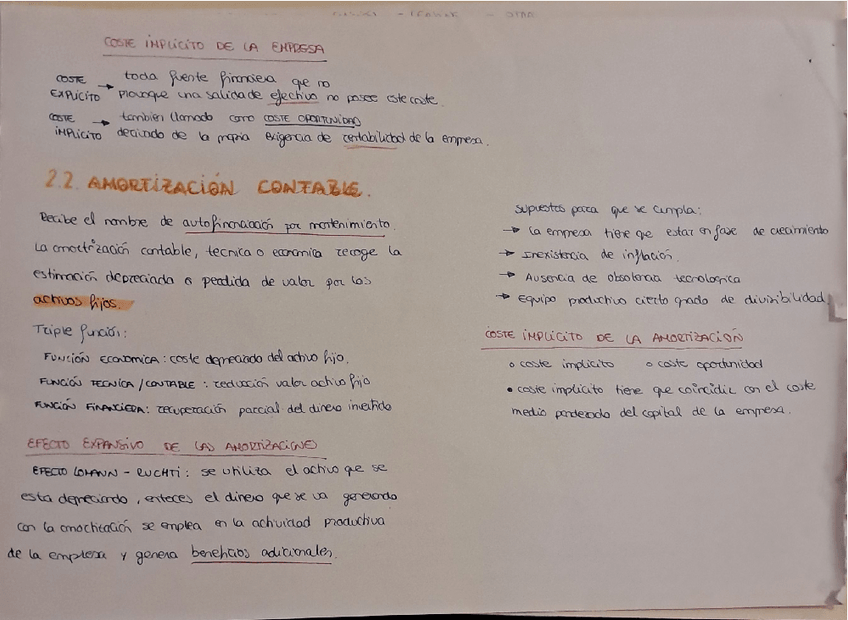 COSTE IMPLICITO DE LA EMPRESA
COSTE EXPLICITO → toda fuente financiera que no
provoque una salida de efectivo no posee este coste.
COSTE IMPLICITO → tambien llamado como COSTE OPORTUNIDAD
derivado de la propia exigencia de rentabilidad de la empresa.
2.2. AMORTIZACIÓN CONTABLE.
Recibe el nombre de autofinanciación por mantenimiento.
La amortización contable, tecnica o economica recoge la
estimación depreciada o perdida de valor por los
activos fijos.
Triple función:
FUNCIÓN ECONOMICA: coste depreciado del activo fijo.
FUNCIÓN TECNICA / CONTABLE: reducción valor activo fijo
FUNCIÓN FINANCIERA: recuperación parcial del dinero invertido
EFECTO EXPANSIVO DE LAS AMORTIZACIONES
EFECTO LOMANN - RUCHTI: se utiliza el activo que se
esta depreciando, entoces el dinero que se va generando
con la amortización se emplea en la actividad productiva
de la empresa y genera beneficios adicionales.
Supuestos para que se cumpla:
→ La empresa tiene que estar en fase de crecimiento
→ Inexistencia de inflación.
→ Ausencia de obsolencia tecnologica
→ Equipo productivo cierto grado de divisibilidad
COSTE IMPLICITO DE LA AMORTIZACIÓN
o coste implicito o coste oportunidad
• coste implicito tiene que coincidir con el coste
medio ponderado del capital de la empresa.